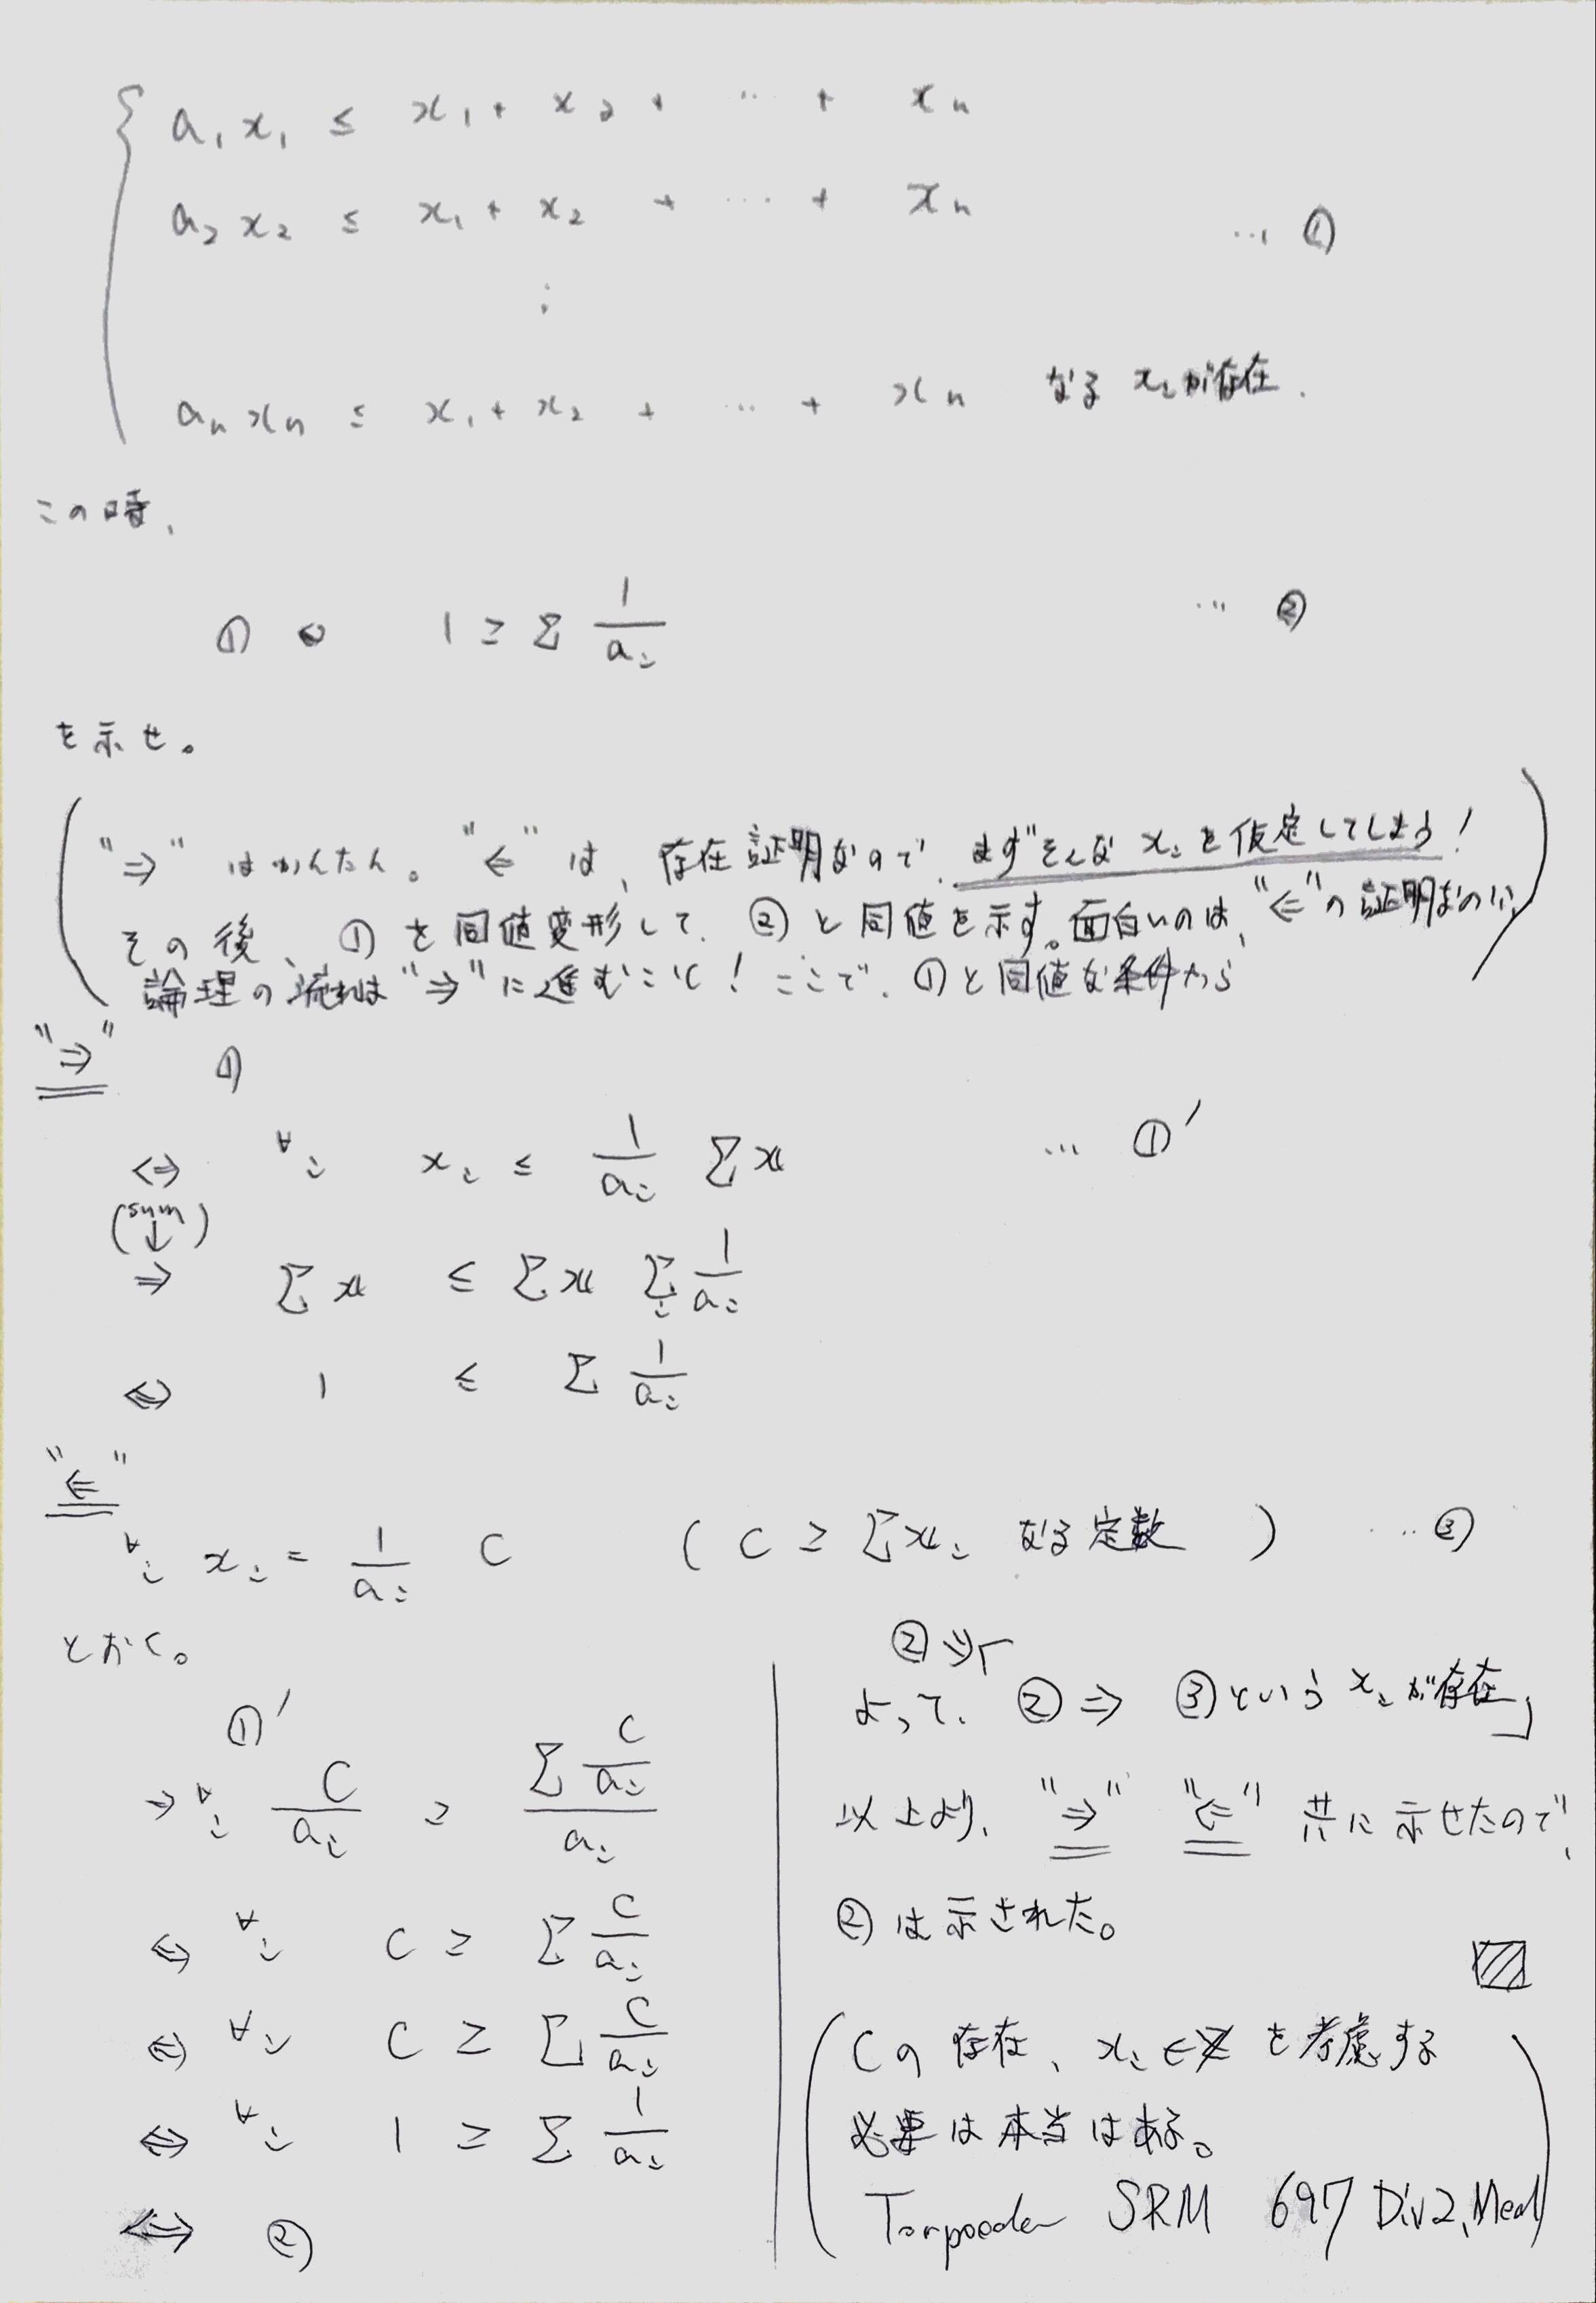 a₁x₁ ≤ x₁ + x₂ + ⋯ + xₙ
a₂x₂ ≤ x₁ + x₂ + ⋯ + xₙ … ①
⋮
aₙxₙ ≤ x₁ + x₂ + ⋯ + xₙ なる xᵢが存在.
この時、
① ⇔ 1 ≥ Σ 1/aᵢ … ②
を示せ。
("⇒" はかんたん。"⇐" は、存在証明なので、まずそんな xᵢ を仮定してしまう!
その後、①を同値変形して、②と同値を示す。面白いのは、"⇐"の証明なのに、
論理の流れは"⇒"に進むこと! ここで、①と同値な条件から)
"⇒" ①
⇔ ∀i xᵢ ≤ 1/aᵢ Σx … ①′
(sum ↓)
⇒ Σx ≤ Σx Σᵢ 1/aᵢ
⇔ 1 ≤ Σ 1/aᵢ
"⇐"
∀i xᵢ = 1/aᵢ C ( C ≥ Σxᵢ なる定数 ) … ③
とおく。
①′
⇒ ∀i C/aᵢ ≥ (Σ C/aᵢ)/aᵢ
⇔ ∀i C ≥ Σ C/aᵢ
⇔ ∀i C ≥ Σ C/aᵢ
⇔ ∀i 1 ≥ Σ 1/aᵢ
⇔ ②
②
よって、② ⇒ ③という xᵢ が存在」
以上より、"⇒" "⇐" 共に示せたので、
②は示された。
(Cの存在、xᵢ ∈ を考慮する
必要は本当はある。
SRM 697 Div2, Med)